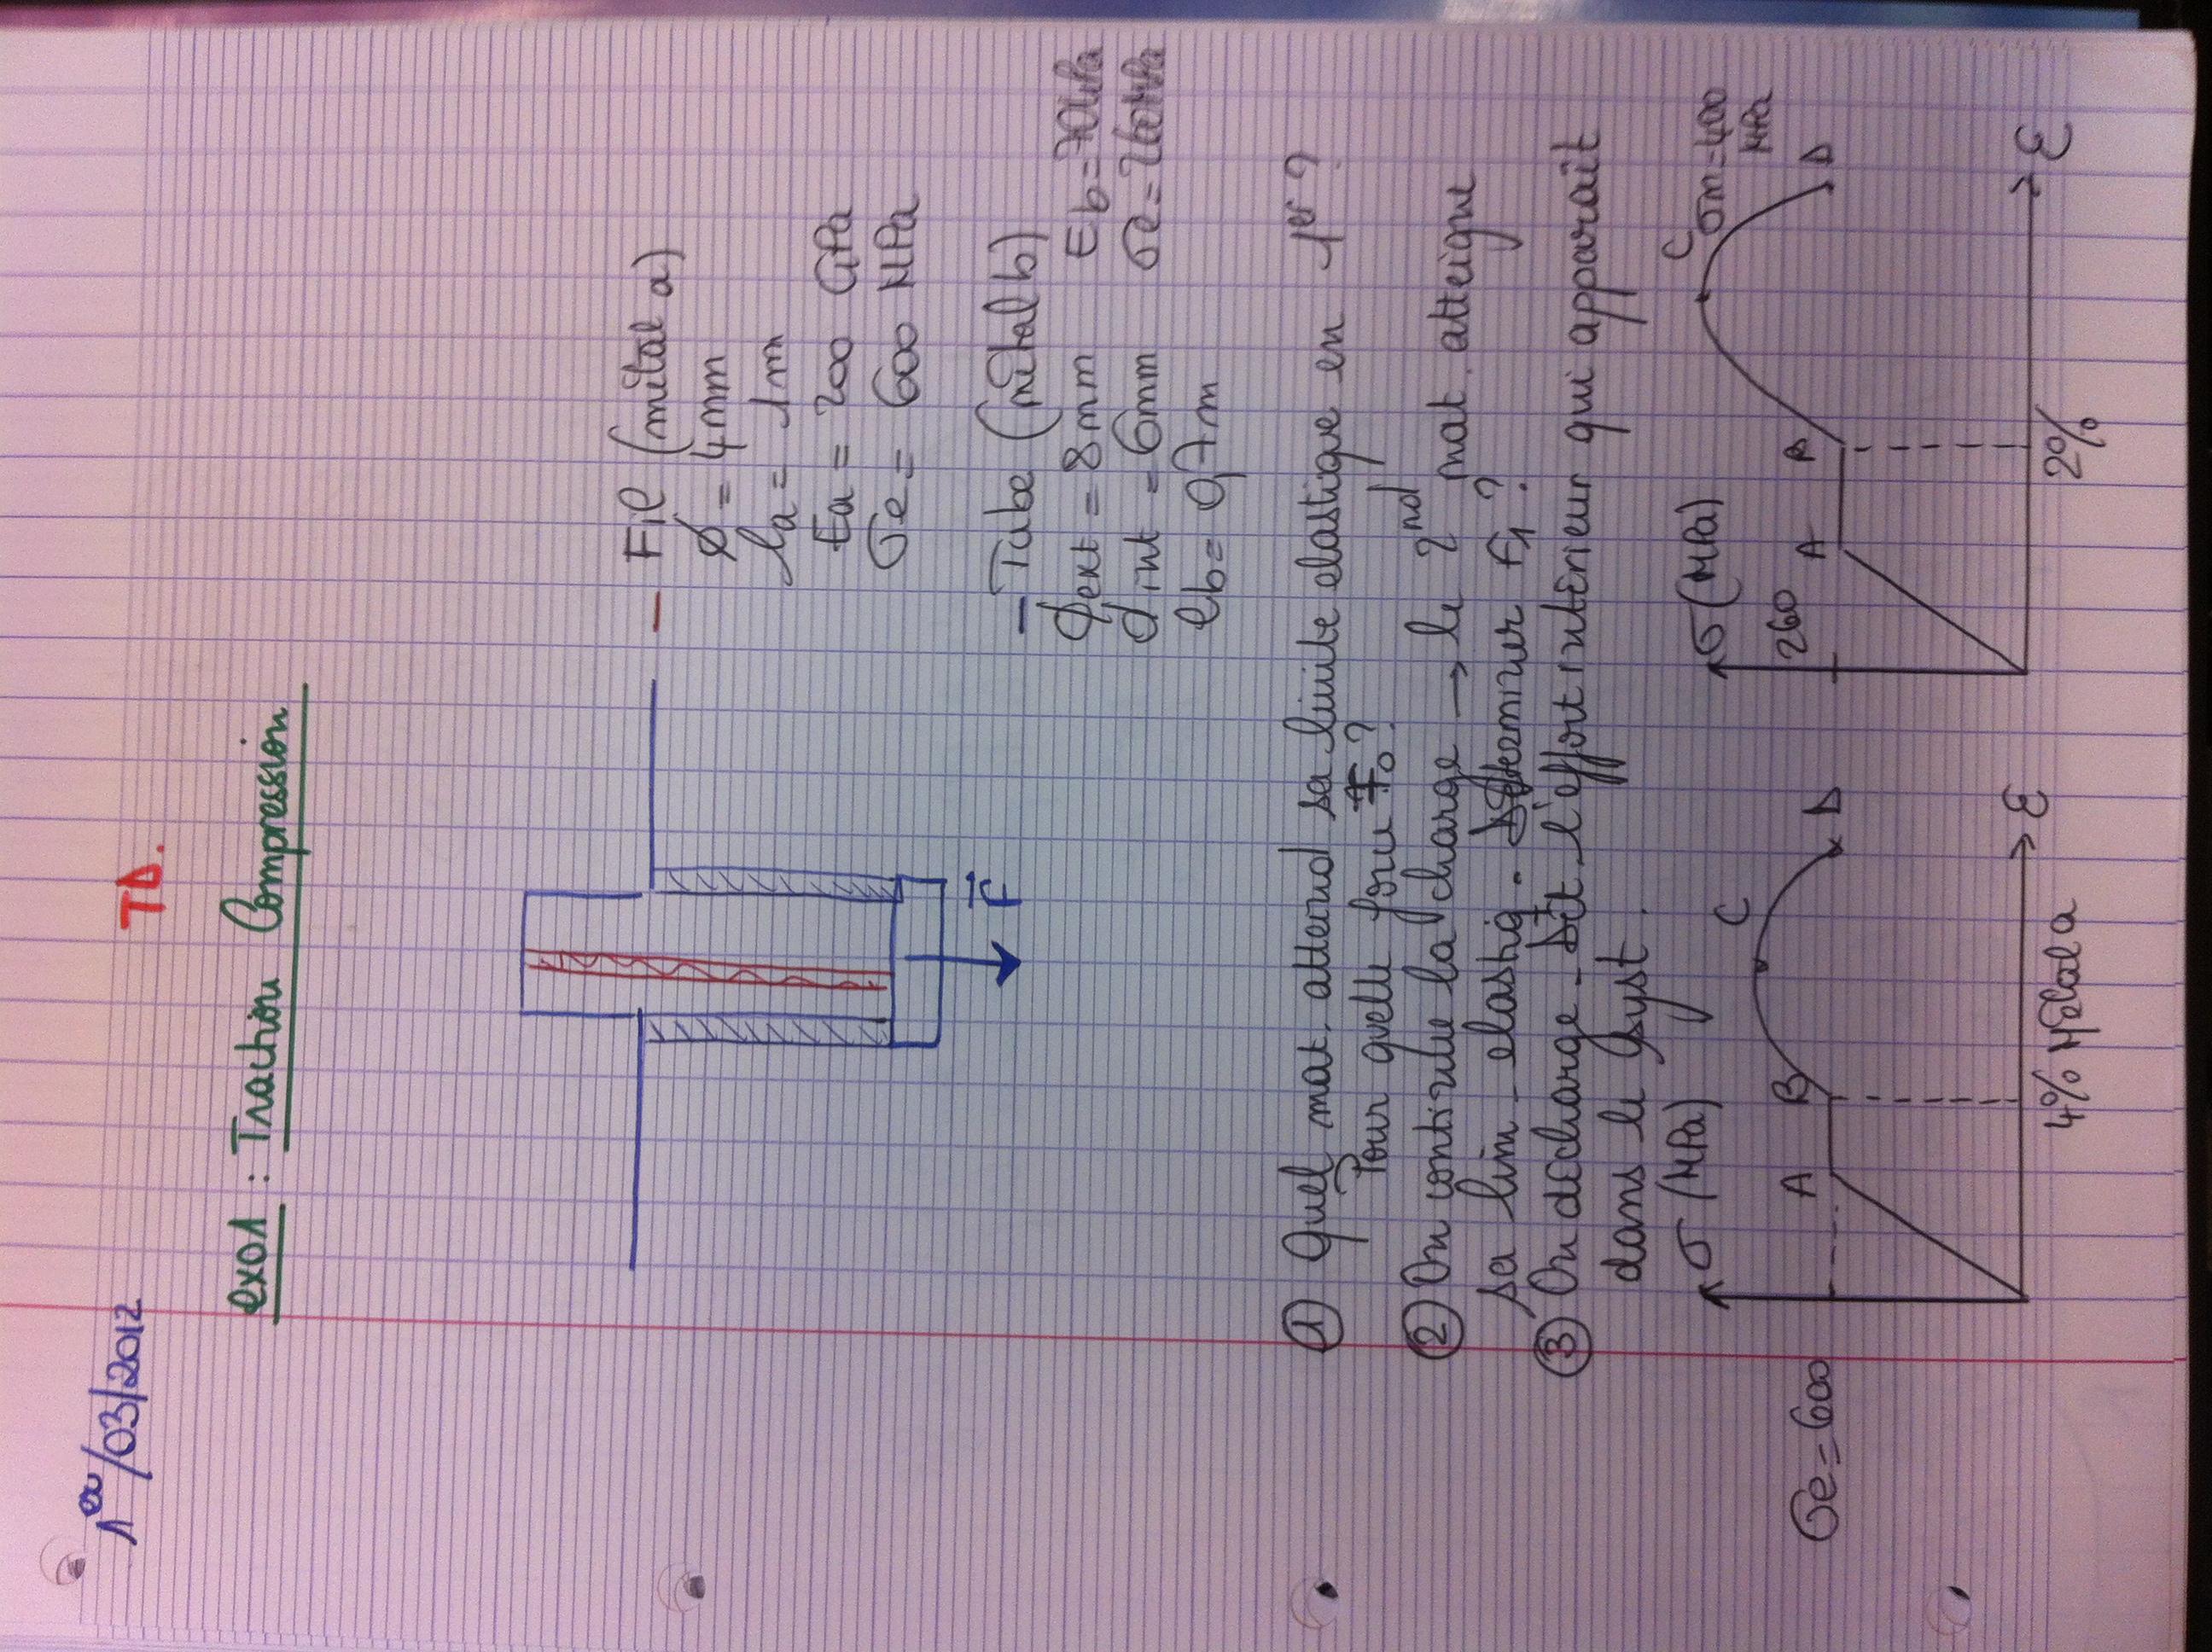 1er/03/2012
TD.
exo1 : Traction Compression
F
- Fil (métal a)
ϕ = 4mm
la = 1m
Ea = 200 GPa
σe = 600 MPa
- Tube (métal b)
ϕext = 8mm Eb = 70GPa
dint = 6mm σe = 260MPa
lb = 0,7m
① Quel mat. atteind sa limite elastique en 1er ?
Pour quelle force F0 ?
② On continue la charge → le 2nd mat. atteigne
sa lim. elastiq. Déterminer F1 ?
③ On décharge. Dét l'effort intérieur qui apparaît
dans le syst.
σ (MPa)
σe = 600
A B C D
ε
4% Métal a
σ (MPa)
260
A B C D
σm = 400
MPa
ε
2%